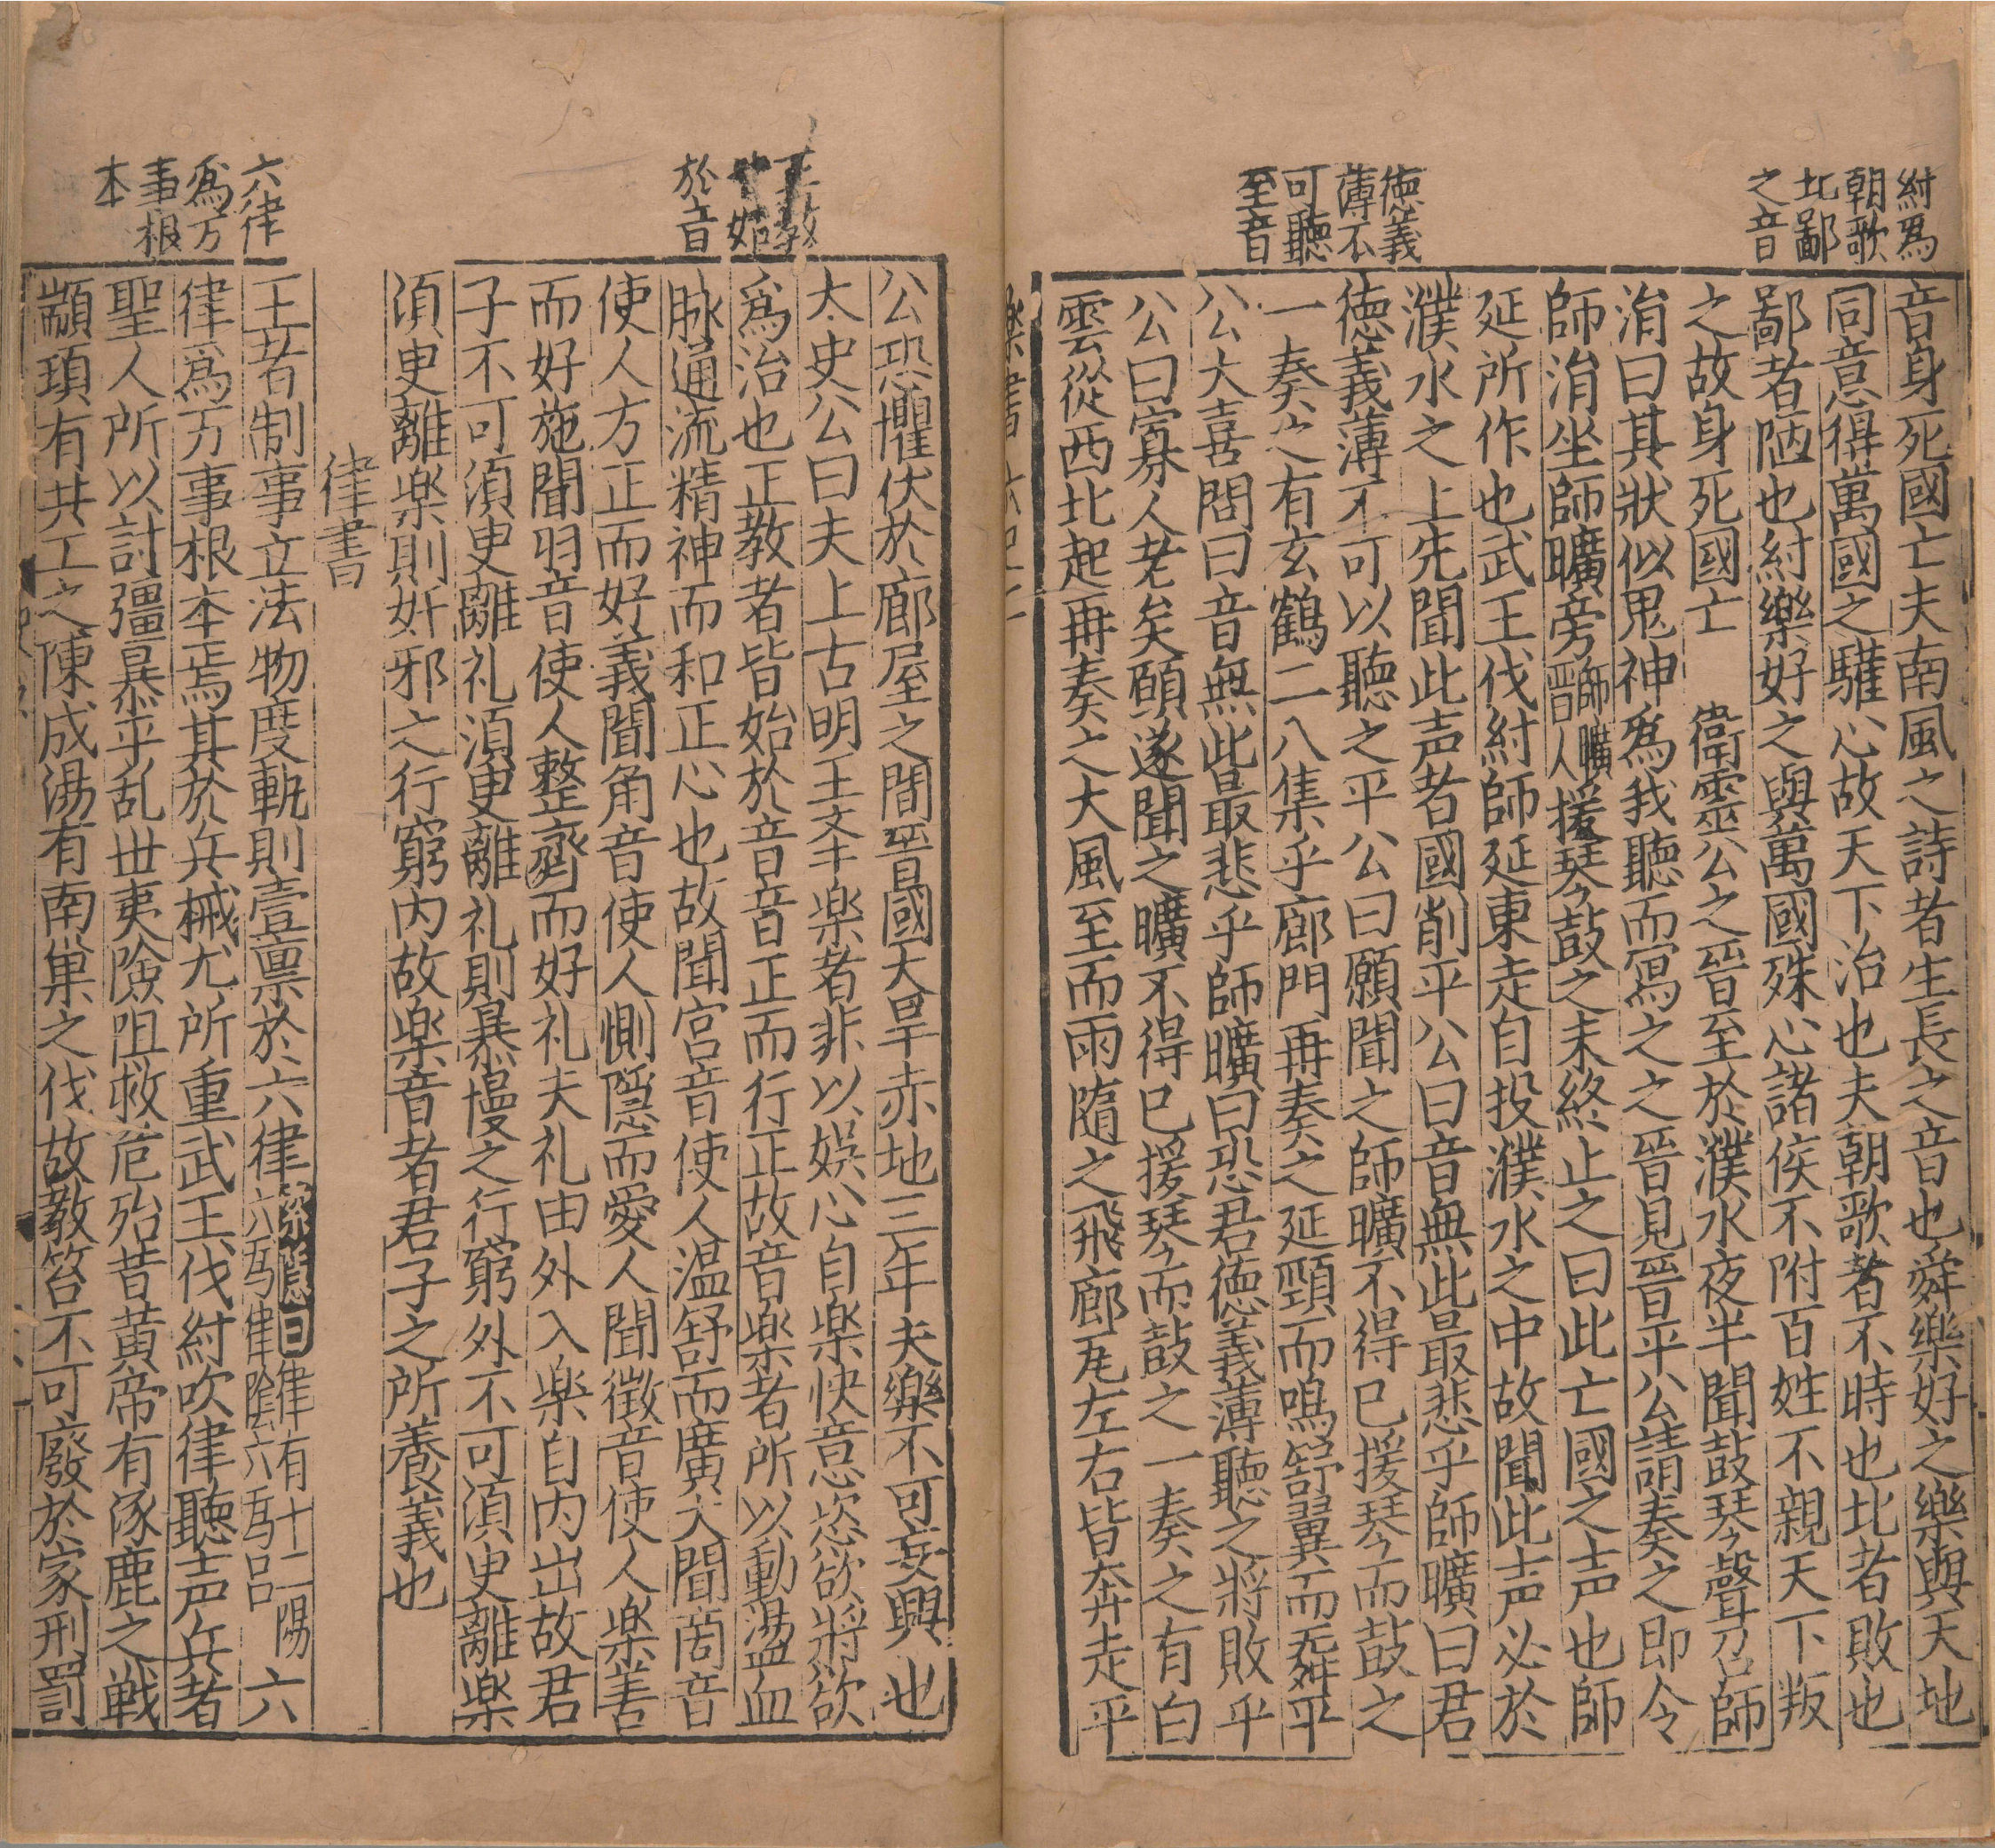 紂爲
朝歌
北鄙
之音
德義
薄不
可聽
至音
音身死國亡夫南風之詩者生長之音也舜樂好之樂與天地
同意得萬國之驩心故天下治也夫朝歌者不時也北者敗也
鄙者陋也紂樂好之與萬國殊心諸侯不附百姓不親天下叛
之故身死國亡 衛靈公之晉至於濮水夜半聞鼓琴聲召師
涓曰其狀似鬼神爲我聽而寫之之晉見晉平公請奏之即令
師涓坐師曠旁師曠晉人援琴鼓之未終止之曰此亡國之声也師
延所作也武王伐紂師延東走自投濮水之中故聞此声必於
濮水之上先聞此声者國削平公曰音無此最悲乎師曠曰君
德義薄不可以聽之平公曰願聞之師曠不得已援琴而鼓之
一奏之有玄鶴二八集乎廊門再奏之延頸而鳴舒翼而舞平
公大喜問曰音無此最悲乎師曠曰恐君德義薄聽之將敗乎
公曰寡人老矣願遂聞之曠不得已援琴而鼓之一奏之有白
雲從西北起再奏之大風至而雨隨之飛廊瓦左右皆奔走平
正教
始
於音
六律
爲万
事根
本
公恐懼伏於廊屋之間晉國大旱赤地三年夫樂不可妄興也
太史公曰夫上古明王本楽者非以娯心自楽快意恣欲將欲
爲治也正教者皆始於音音正而行正故音楽者所以動盪血
脉通流精神而和正心也故聞宮音使人温舒而廣大聞商音
使人方正而好義聞角音使人惻隠而愛人聞徵音使人楽善
而好施聞羽音使人整齊而好礼夫礼由外入楽自内出故君
子不可須臾離礼須臾離礼則暴慢之行窮外不可須臾離楽
須臾離楽則奸邪之行窮内故楽音者君子之所養義也
律書
王者制事立法物度軌則壹稟於六律索隱曰律有十二陽六爲律陰六爲呂六
律爲万事根本焉其於兵械尤所重武王伐紂吹律聽声兵者
聖人所以討彊暴平乱世夷險阻救危殆昔黄帝有涿鹿之戦
顓頊有共工之陳成湯有南巣之伐故教笞不可廢於家刑罰